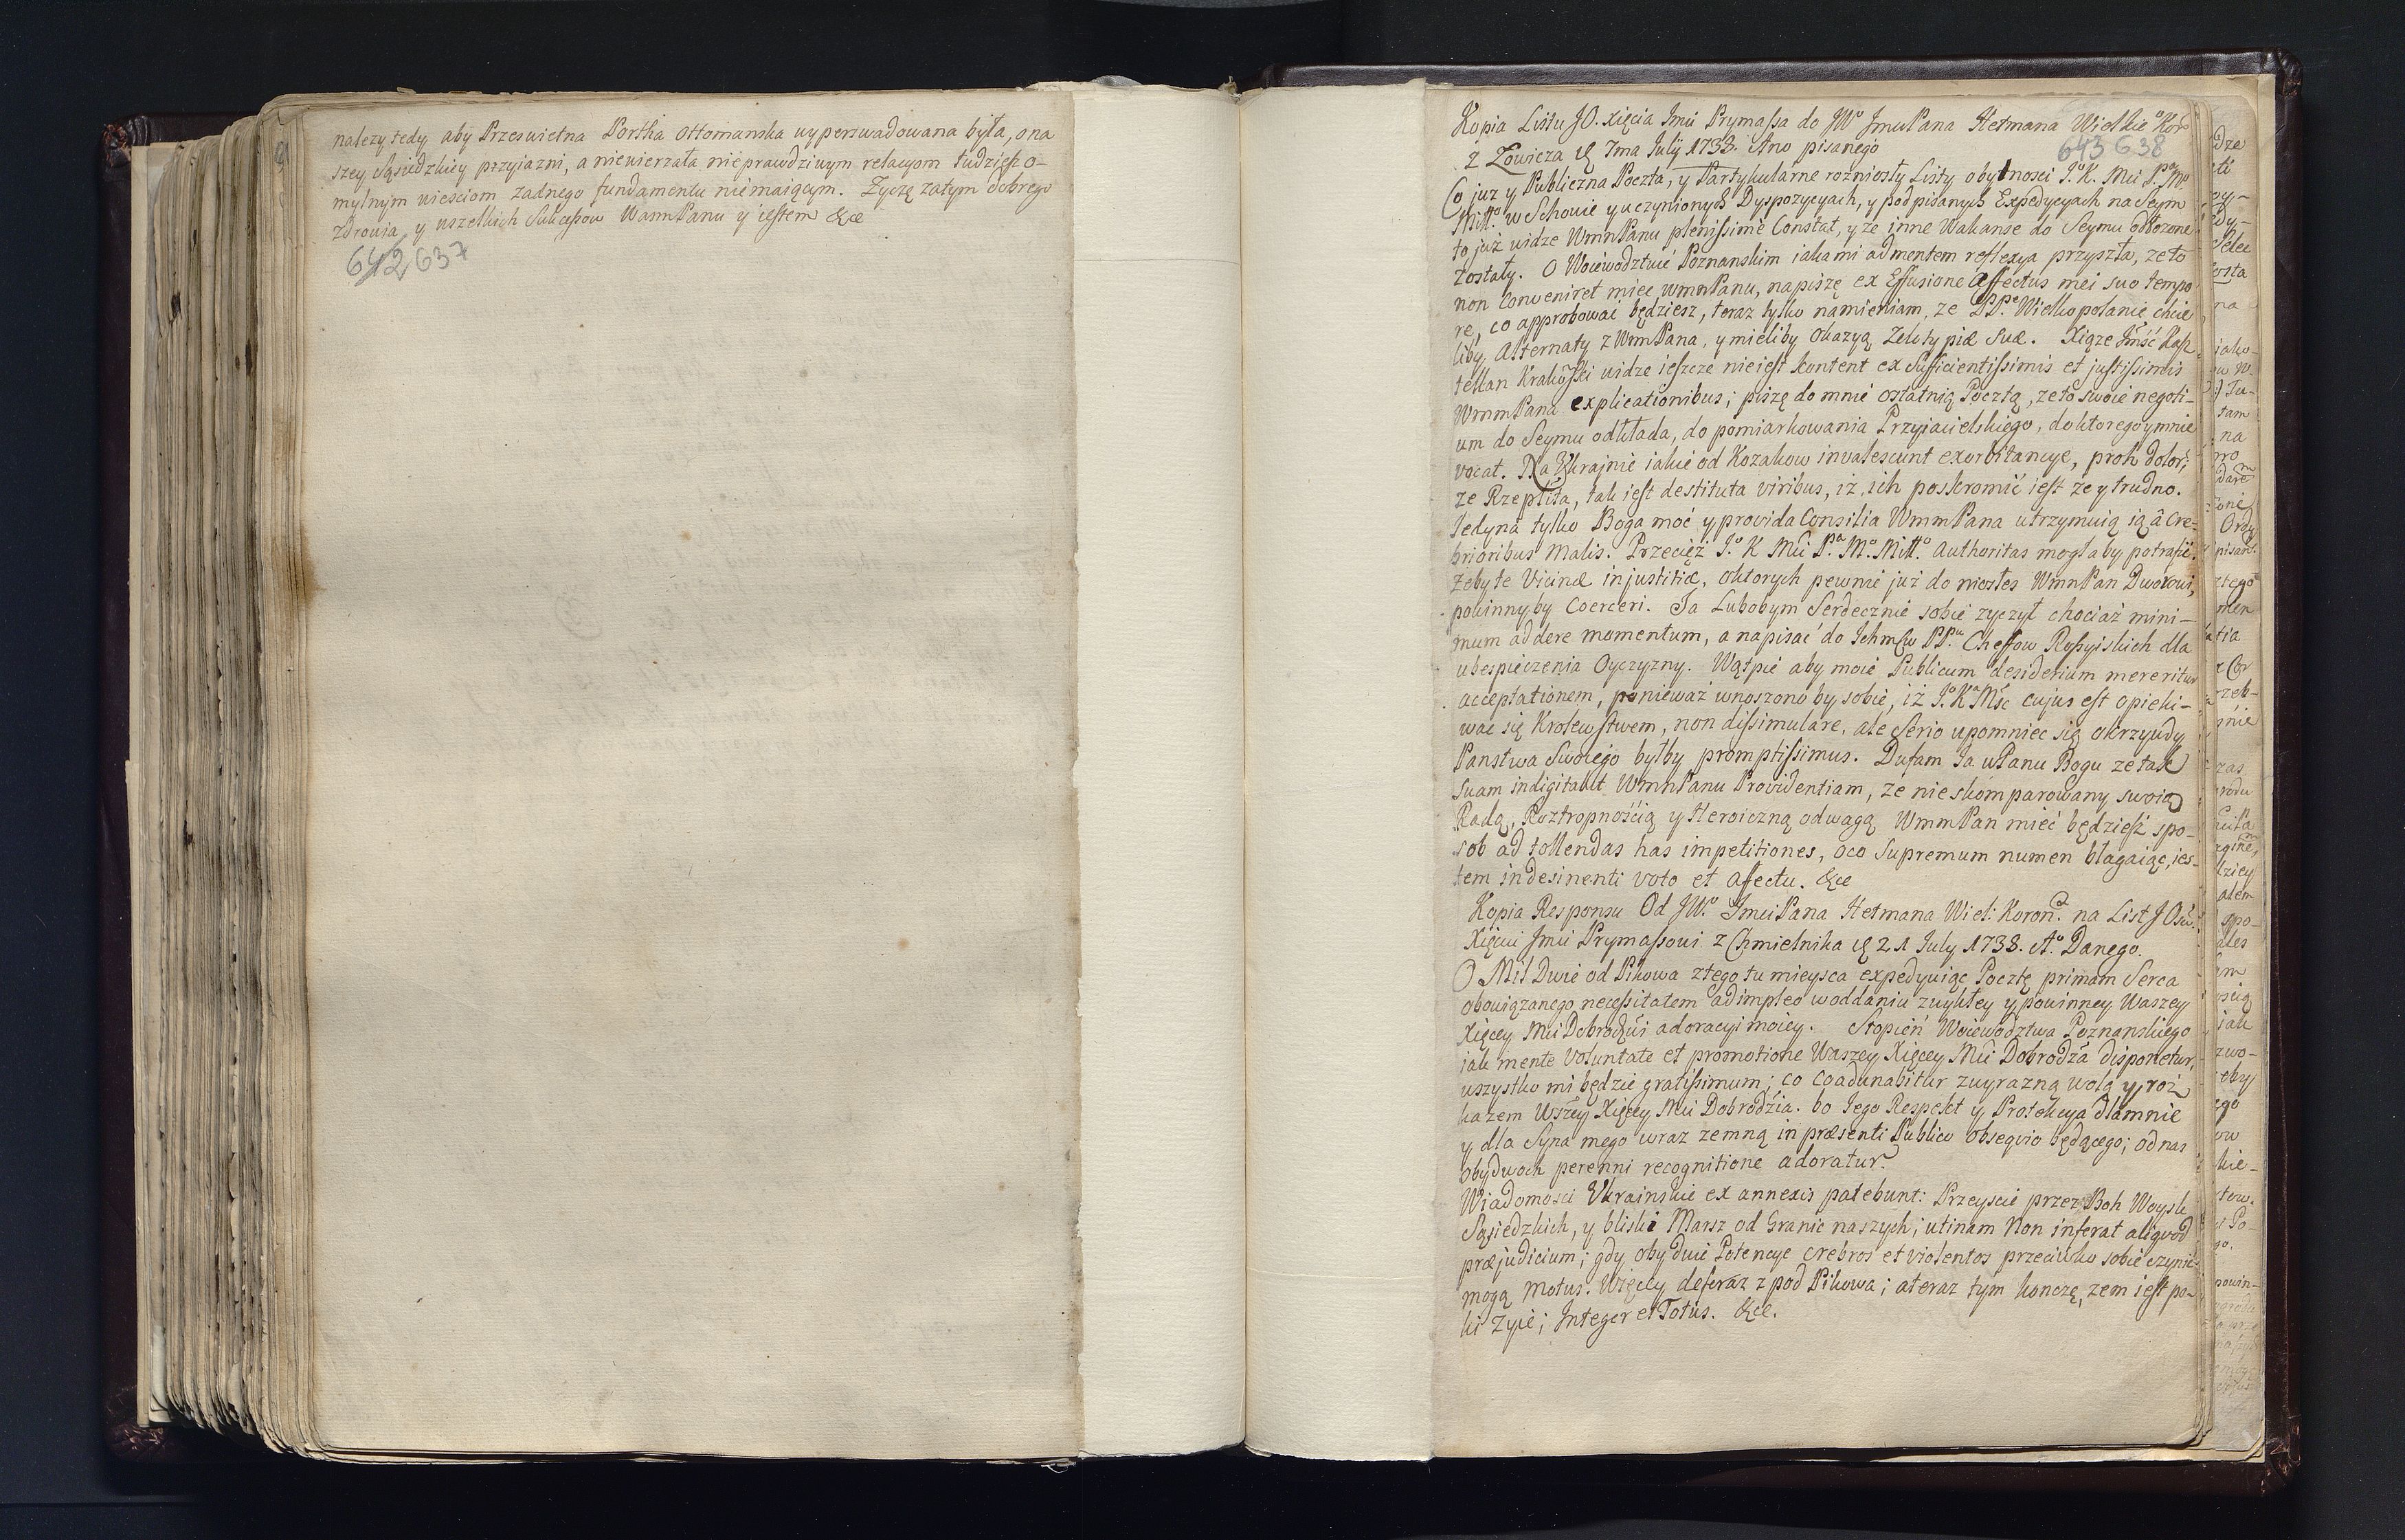 nalezy tedy aby Przeswietna Portha Ottomanska wyperswadowana była, o na
szey Sąsiedzkiey przyiazni, a niewierzała nieprawdziwym relacyom tudziesz o-
mylnym wiesciom zadnego fundamentu niemaiącym. Zyczę zatym dobrego
zdrowia y wszelkich Sukcessow WasmPanu y iestem &ce
642 637
Kopia Listu JO. Xięcia Imci Prymassa do JWo ImciPana Hetmana Wielkieo Kor
z Łowicza d 7ma Julij 1738. Ano pisanego
643 638
Co juz y Publiczna Poczta, y Partykularne rozniosły Listy o bytnosci J.o K. Mci P.a Mo
Miłło w Schowie y uczynionych Dyspozycyach, y podpisanych Expedycyach na Seym
to już widze WmnPanu plenissime Constat, y że inne Wakanse do Seymu odłozone
zostały. O Woiewodztwie Poznanskim iaka mi ad mentem reflexya przyszła, ze to
non Conveniret miec WmnPanu, napiszę ex Effusione Affectus mei suo tempo
re, co approbowac będziesz, teraz tylko namieniam, ze PP. Wielkopolanie chcie
liby Alternaty z WmnPana, y mieliby Okazyą Zelotypiæ suæ. Xiąze Jmść Kasz
tellan Krakowski widze ieszcze nieiest kontent ex Sufficientissimis et justissimis
WmmPana explicationibus; piszę do mnie ostatnią Pocztą, ze to swoie negoti-
um do Seymu odkłada, do pomiarkowania Przyiacielskiego, do ktorego y mnie
vocat. Na Ukrajnie iakie od Kozakow invalescunt exorbitancye, proh dolor;
ze Rzeplta, tak iest destituta viribus, iż ich poskromić iest ze y trudno.
Jedyna tylko Boga moć y provida Consilia WmmPana utrzymuią ią â Cre-
brioribus malis. Przecięż J.o K Mci P.a M.o Miłł.o Authoritas mogłaby potrafić,
żeby te Vicinæ injustitiæ, o ktorych pewnie już do niosłes WmnPan Dworowi,
powinnyby Coerceri. Ja Lubobym Serdecznie sobie zyczył chociaż mini-
mum addere momentum, a napisać do Ichmciw PP. Cheffow Rossyiskich dla
ubespieczenia Oyczyzny. Wątpie aby moie Publicum desiderium mereritur
acceptationem, ponieważ wnoszono by sobie, iż J.o K Mść cujus est opieki-
wac się Krolewstwem, non dissimulare, ale Serio upomniec się o krzywdy
Panstwa Swoiego byłby promptissimus. Dufam Ja w Panu Bogu ze tak
Suam indigitabit WmnPanu Providentiam, ze nieskomparowany swoią
Radą, Roztropnością y Heroiczną odwagą WmmPan mieć będziesz spo-
sob ad tollendas has impetitiones, o co Supremum numen błagaiąc, ies-
tem indesinenti voto et affectu. &ce
Kopia Responsu Od JW.o ImciPana Hetmana Wiel: Koron. na List JOśw:
Xięciu Jmci Prymassowi z Chmielnika d 21 July 1738. Ao Danego.
O Mil Dwie od Pikowa z tego tu mieysca expedyuiąc Pocztę primam Serca
obowiązanego necessitatem adimpleo w oddaniu zwykłey y powinney Waszey
Xięcey Mci Dobrodzci adoracyi moiey. Stopień Woiewodztwa Poznanskiego
jak mente Voluntate et promotione Waszey Xięcey Mci Dobrodźa disponetur,
wszystko mi będzie gratissimum; co coadunabitur z wyrazną wolą y roz
kazem Wszey Xięcey Mci Dobrodźia. bo Jego Respekt y Protekcya dla mnie
y dla Syna mego wraz zemną in præsenti Publico obseqvio będącego; od nas
obydwoch perenni recognitione adoratur.
Wiadomosci Ukrainskie ex annexis patebunt: Przeyscie przez Boh Woysk
Sąsiedzkich, y bliski Marsz od Granic naszych; utinam Non inferat aliqvod
præjudicium; gdy obydwie Potencye crebros et violentos przeciwko sobie czynić
mogą motus. Więcey deferaz z pod Pikowa; a teraz tym konczę, zem iest po-
ki żyie; Integer et Totus. &ce.